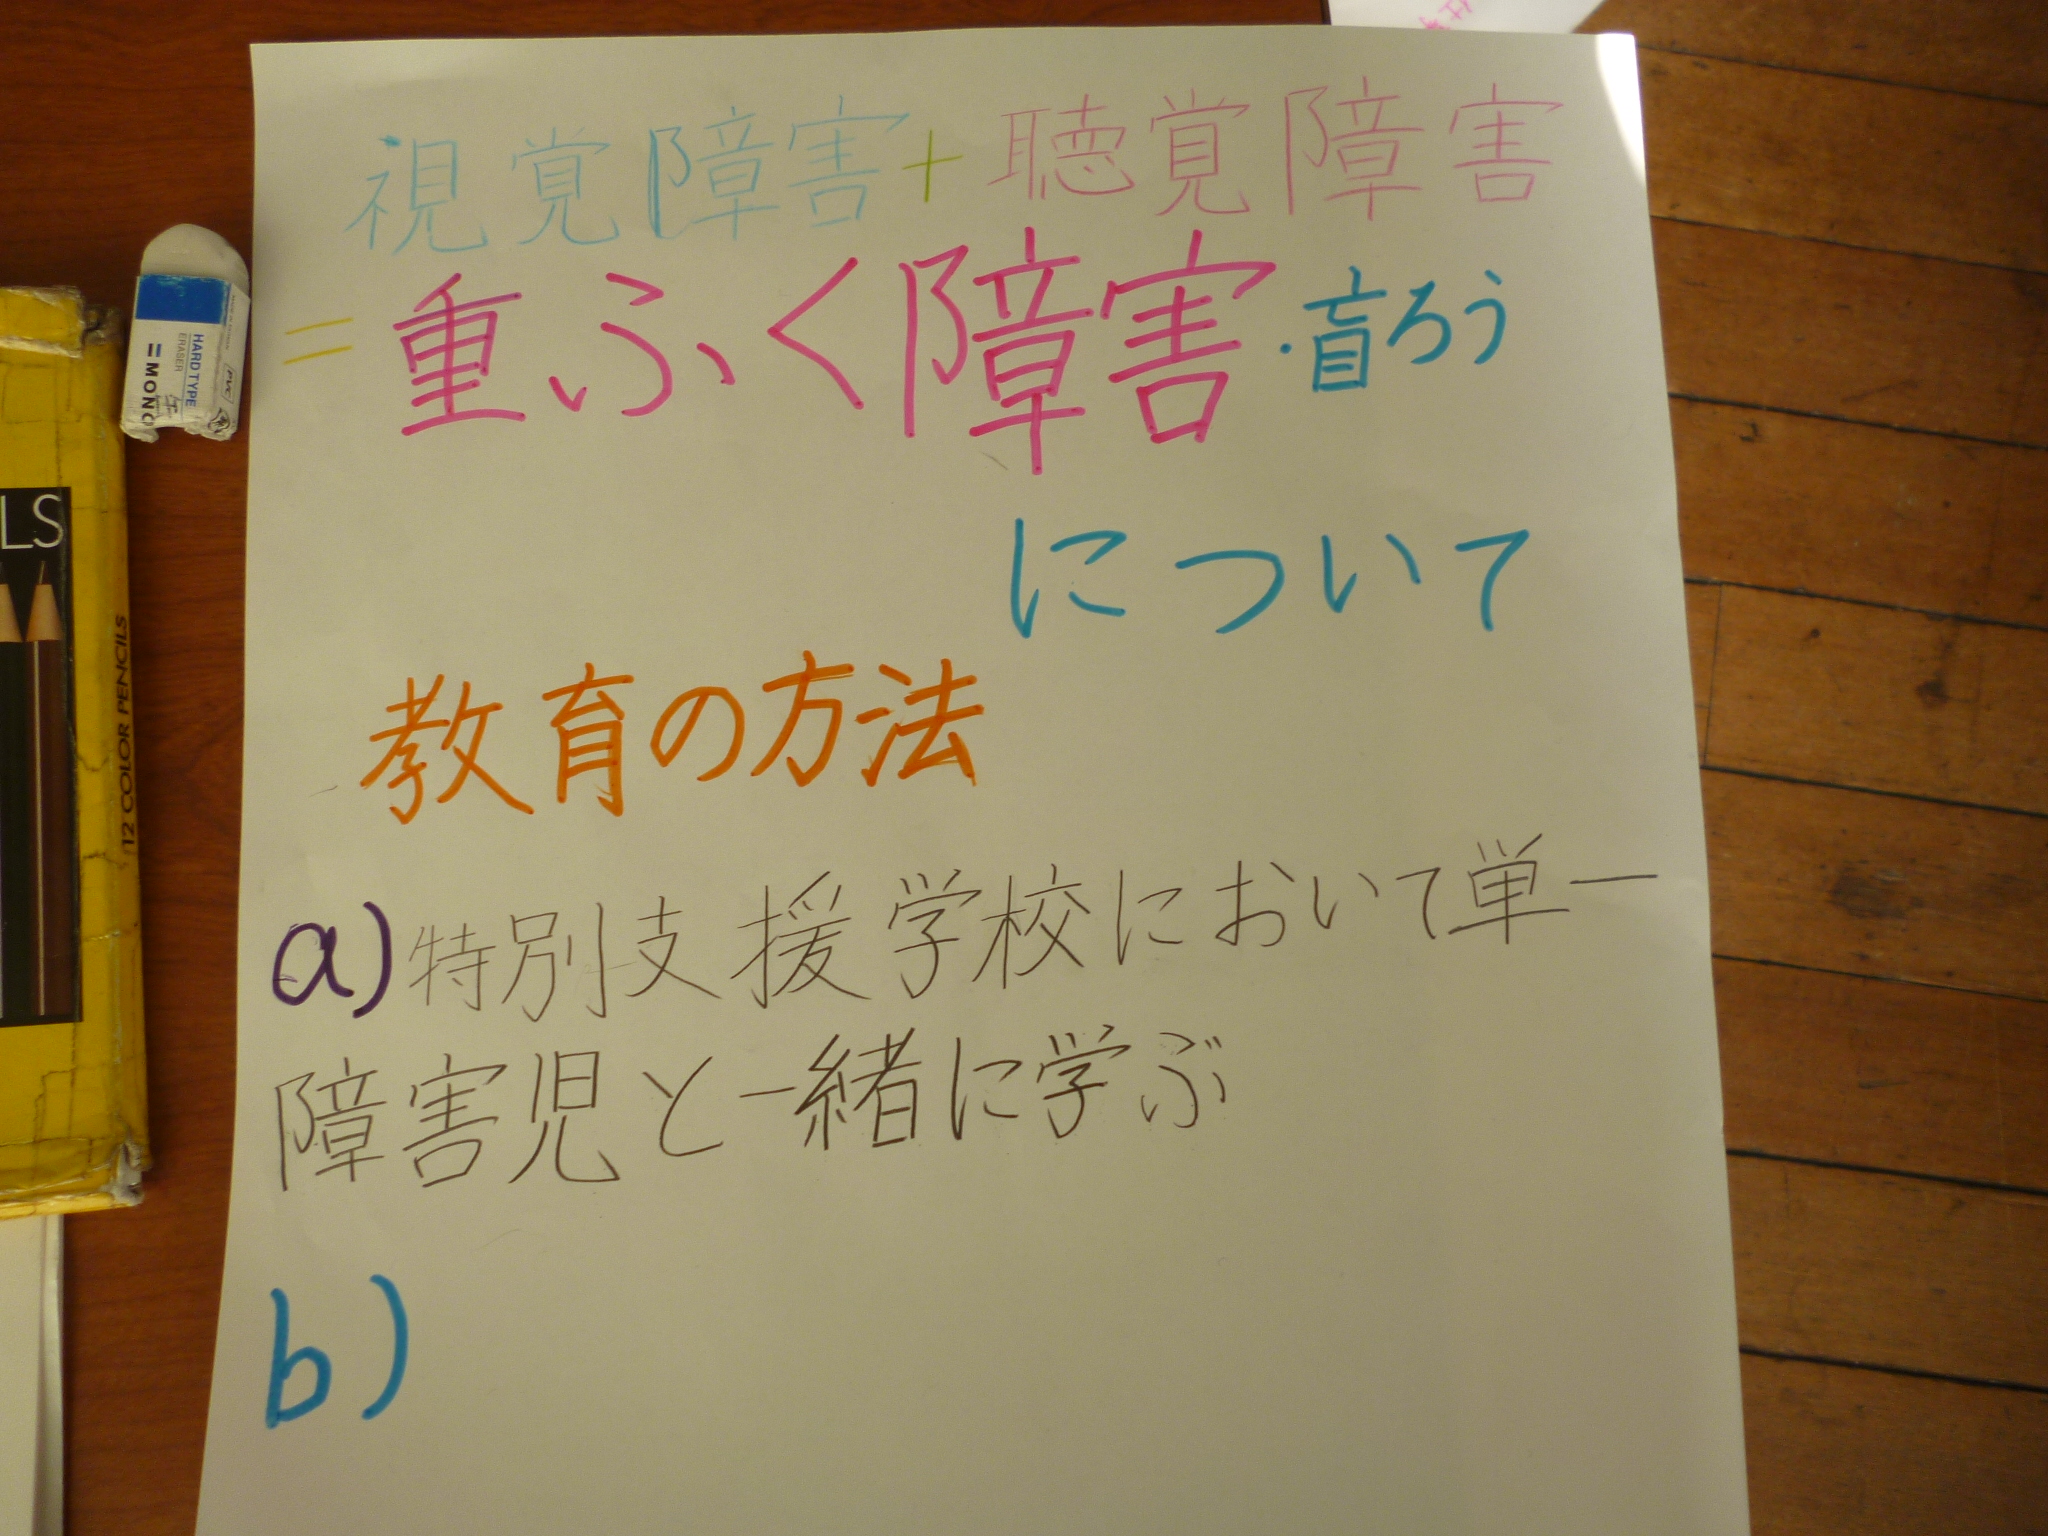 視覚障害+聴覚障害
=重ふく障害・盲ろう
について
教育の方法
a)特別支援学校において単一
障害児と一緒に学ぶ
b)
HARD TYPE
ERASER
PVC
MONO
LS
12 COLOR PENCILS